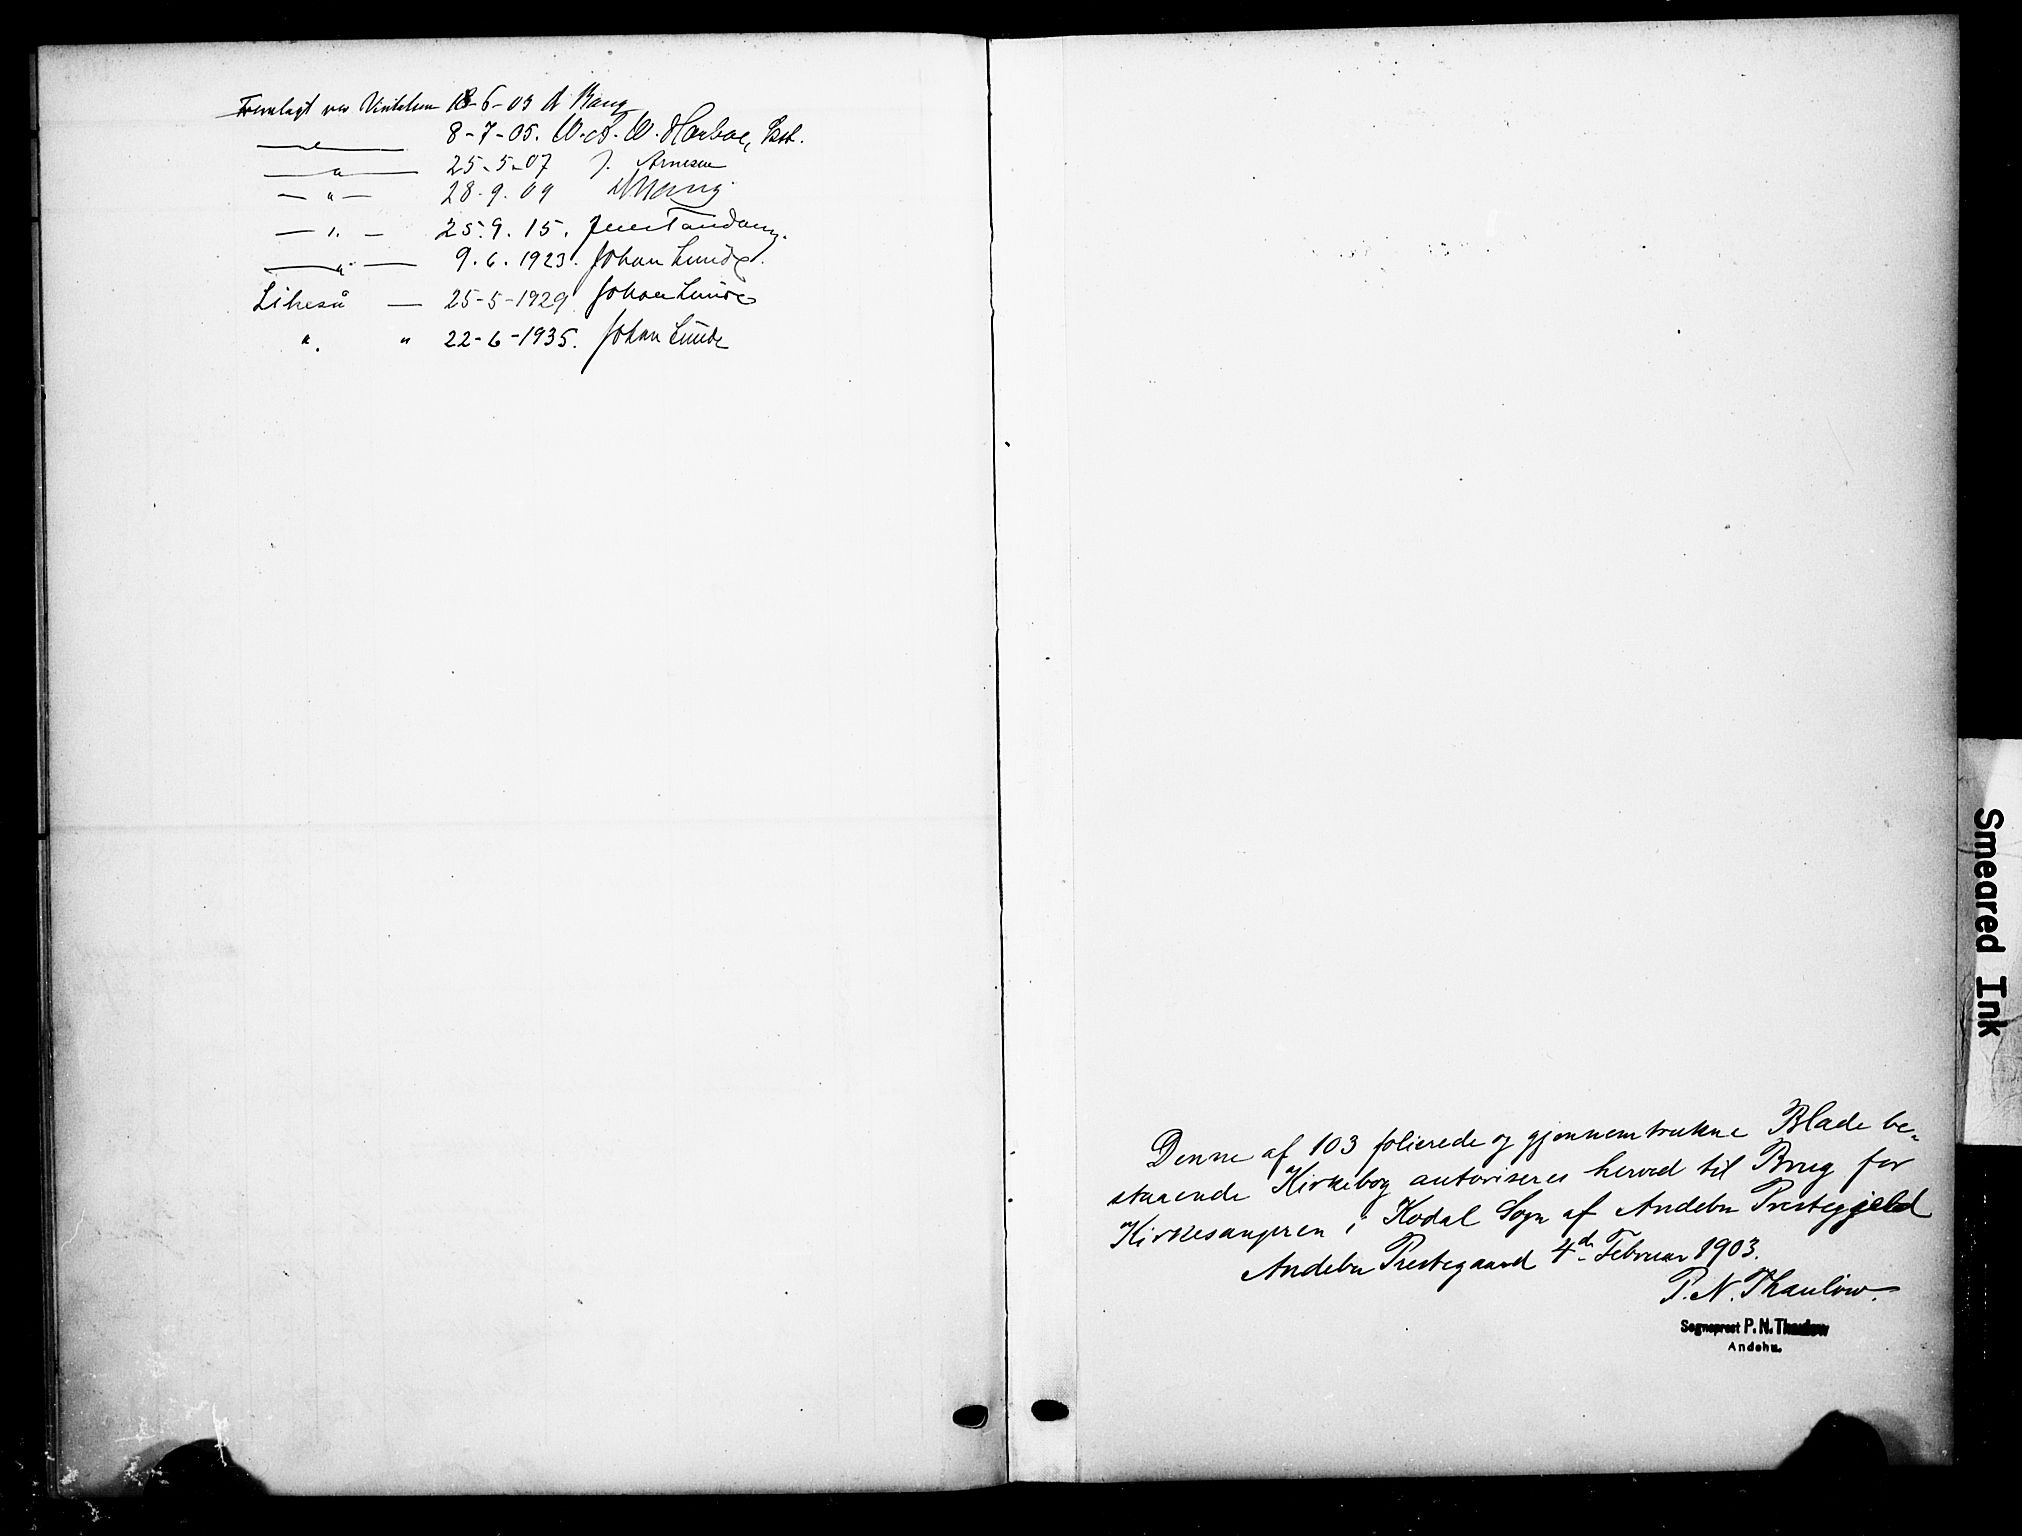 Fremlagt ved Visitatsen 18-6-03 A Bang
—"— 8-7-05. W. A. W. Harboe, Bsk.
—"— 25-5-07 J. Arnesen
—"— 28-9-09 A Bang
—"— 25.9.15. Jens Tandberg.
—"— 9.6.1923. Johan Lunde.
Likeså — 25-5-1929 Johan Lunde
" " 22-6-1935. Johan Lunde
Denne af 103 folierede og gjennemtrukne Blade be-
staaende Kirkebog autoriseres herved til Brug for
Kirkesangeren i Kodal Sogn af Andebu Prestegjeld
Andebu Prestegaard 4de Februar 1903.
P. N. Thaulow.
Sogneprest P. N. Thaulow
Andebu.
Smeared Ink